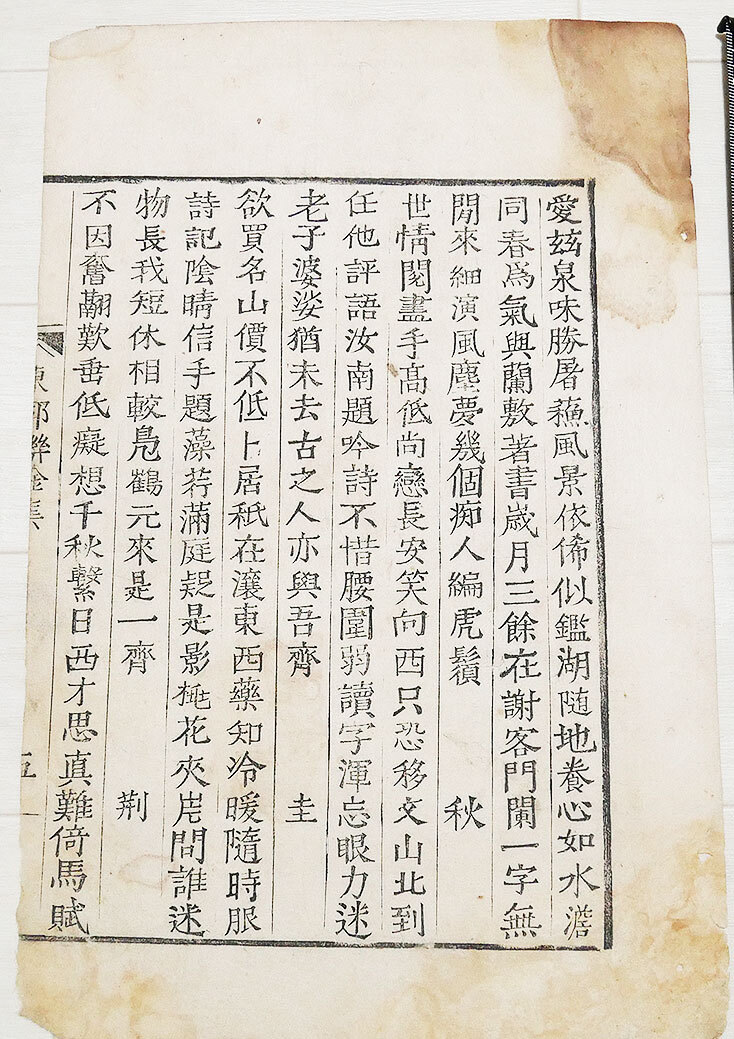 愛茲泉味勝屠蘓風景依俙似鑑湖隨地養心如水澹
同春爲氣與蘭敷著書歲月三餘在謝客門闌一字無
閒來細演風塵慶幾個痴人編虎鬚 秋
世情閱盡手高低尚戀長安笑向西只恐移文山北到
任他評語汝南題吟詩不惜腰圍弱讀字渾忘眼力迷
老子婆娑猶未去古之人亦與吾齊 圭
欲買名山價不低卜居秪在瀼東西藥知冷暖隨時服
詩記陰晴信手題藻荇滿庭疑是影桃花夾岸問誰迷
物長我短休相較鳧鶴元來是一齊 荆
不因奮翮歎垂低癡想千秋繫日西才思真難倚馬賦
五